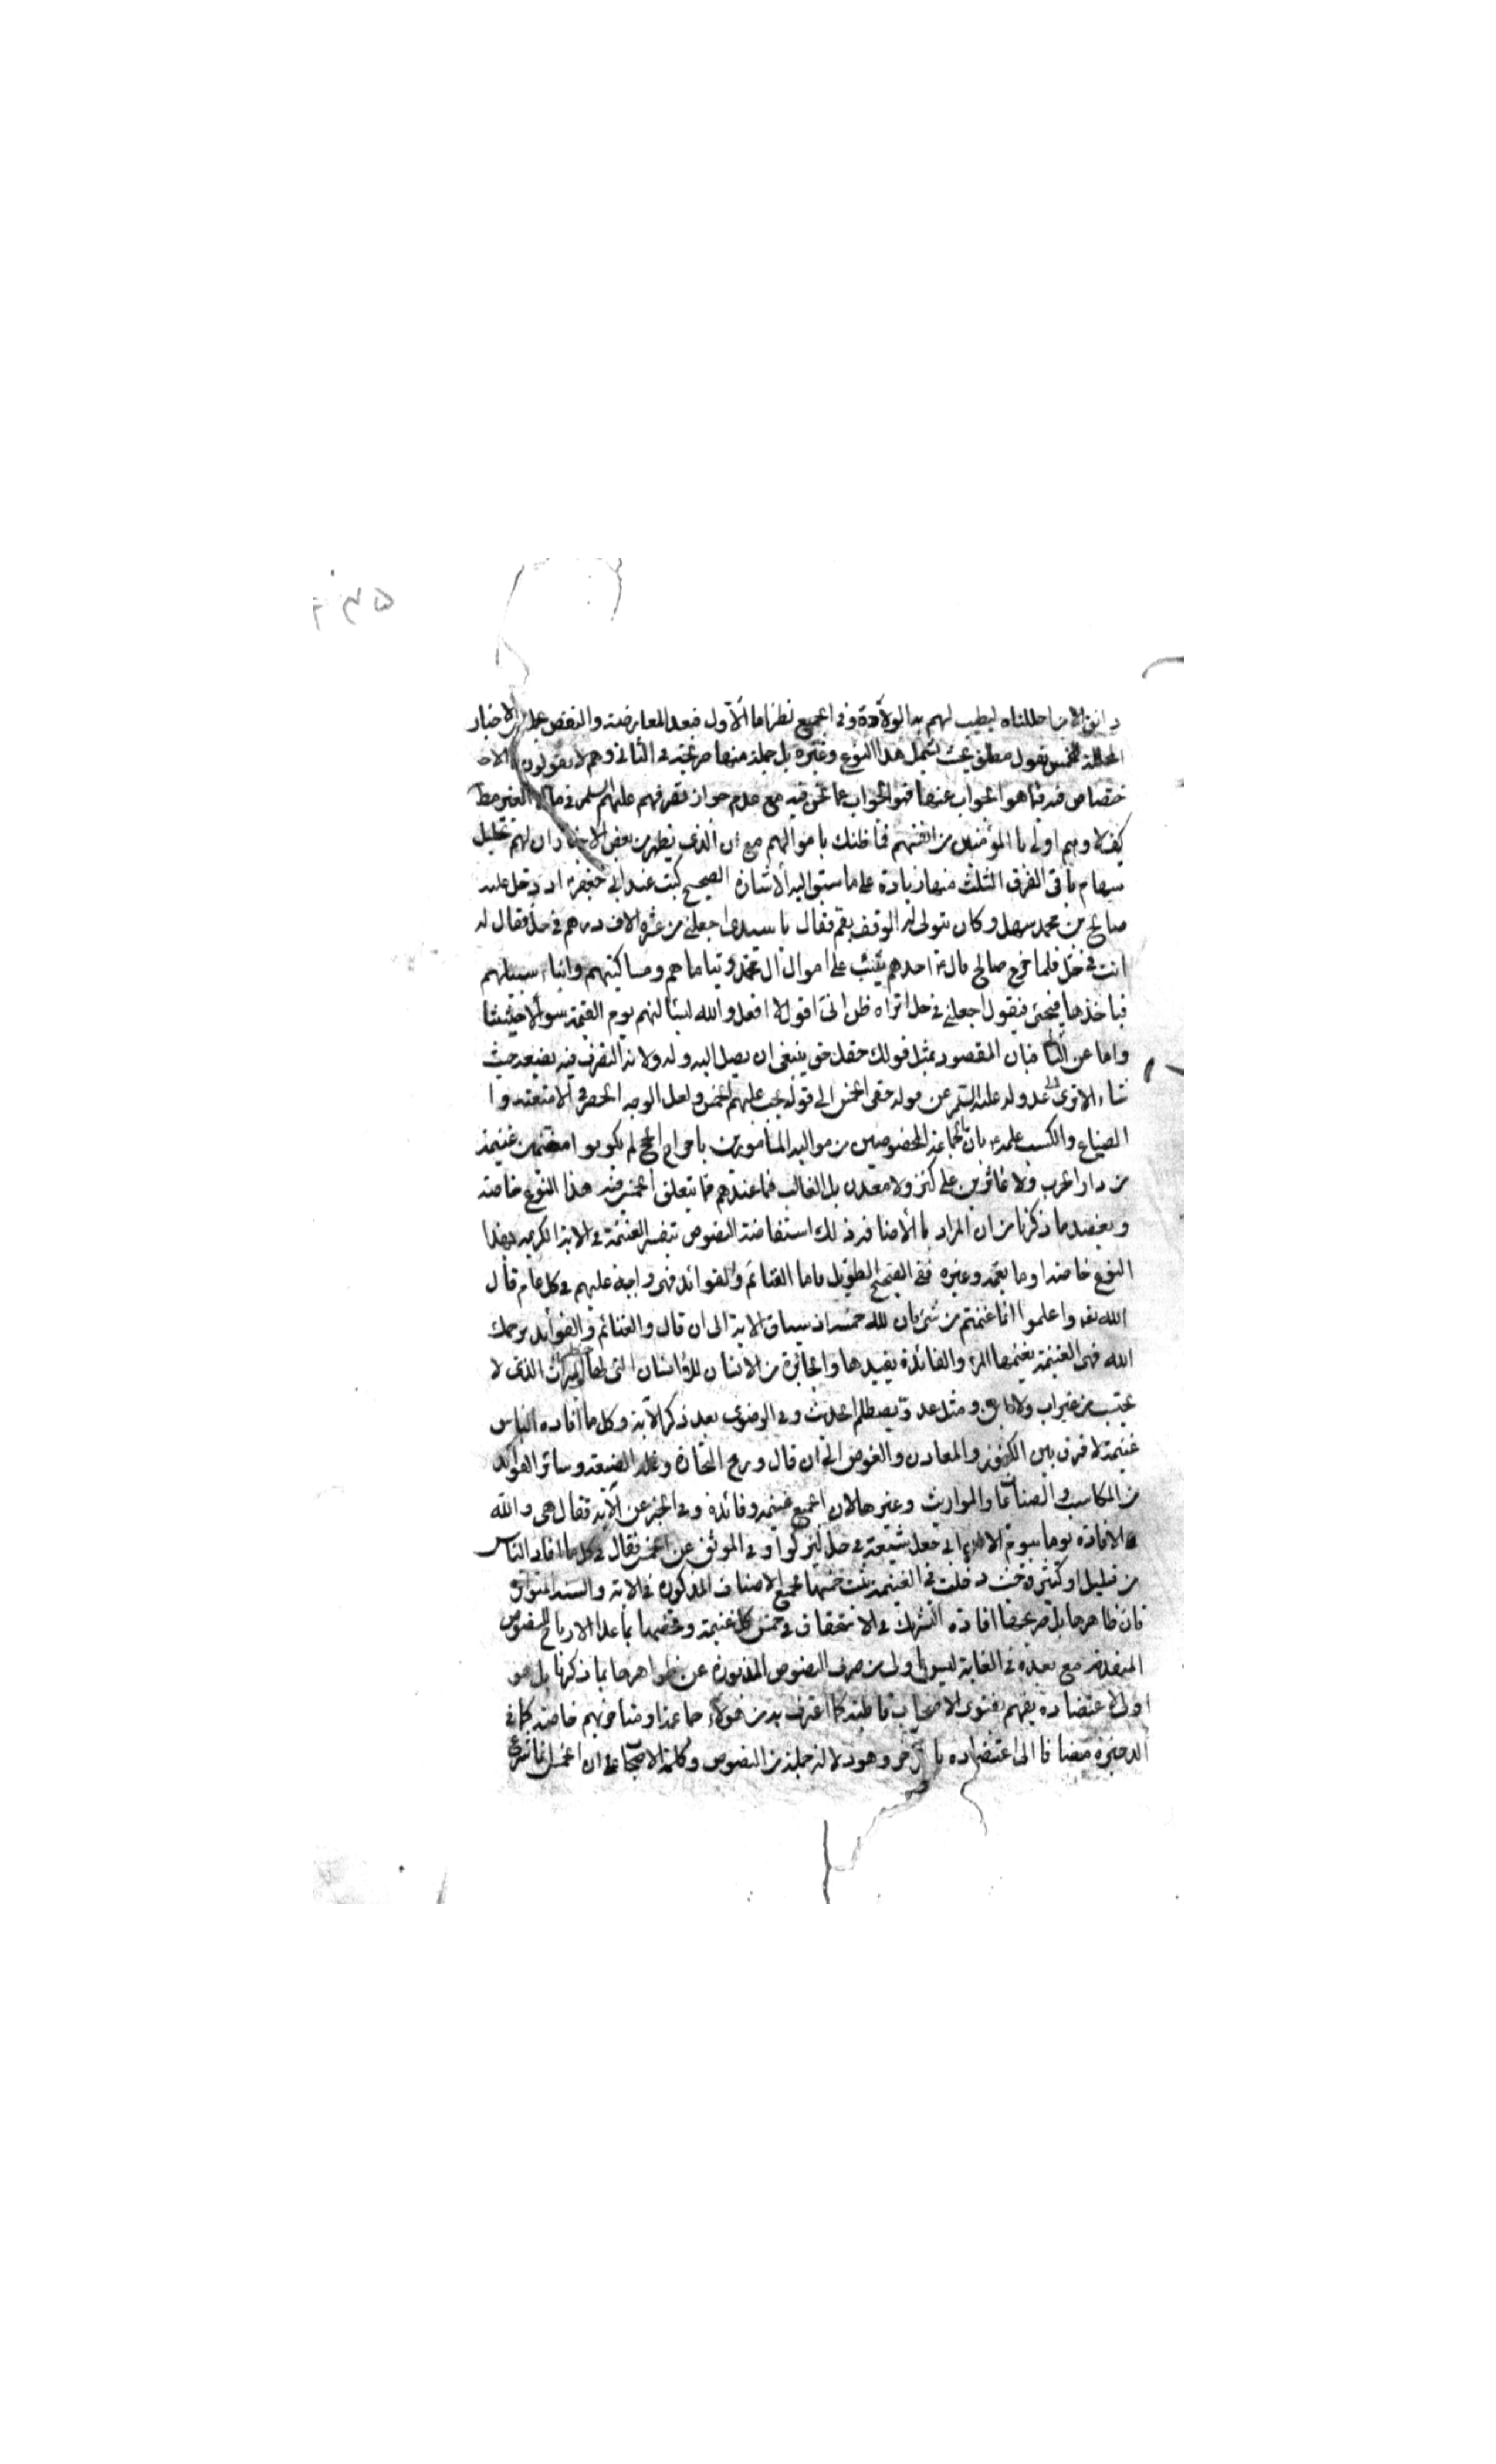 دانق الا من احللناه ليطيب لهم به الولادة وفى الجميع نظر اما الاول فبعد المعارضة والنقض بجملة من الاخبار
المحللة للخمس بقول مطلق بحيث يشمل هذا النوع وغيره بل جملة منها صريحة فى الثانى وهم لا يقولون الاخ
ختصاص فيه فما هو الجواب عنها فهو الجواب عما نحن فيه مع عدم جواز تصرفهم عليهم السلم فى مال الغير مط
كيف لا وهم اولى بالمؤمنين من انفسهم فما ظنك باموالهم مع ان الذى يظهر من بعض الاخبار ان لهم تحليل
سهام باقى الفرق الثلث منها زيادة على ما ستوا اليه الاشارة الصحيح كنت عند ابى جعفر اذ دخل عليه
صالح بن محمد سهل وكان يتولى له الوقف بقم فقال يا سيدى اجعلنى من عشرة الاف درهم فى حل فقال له
انت فى حل فلما خرج صالح قال احدهم يثب على اموال ال محمد ويتاماهم ومساكينهم وابناء سبيلهم
فياخذها فيجئ فيقول اجعلنى فى حل اتراه ظن انى اقول لا افعل والله ليسئالنهم يوم القيمة سؤالا حثيثا
واما عن الثا فبان المقصود بمثل قولك حقك حتى ينبغى ان يصل اليه وله ولاية التصرف فيه يضيعه حيث
شاء الا ترى الى عدوله عليه السلم عن قوله حقى الخمس الى قوله يجب عليهم الخمس ولعل الوجه الحصر فى الامتعة وا
الصنايع والكسب علمه بان الجماعة المخصوصين من مواليه المأمورين باخراج الخمس لم يكونوا مغتنمين غنيمة
من دار الحرب ولا عاثرين على كنز ولا معدن بل الغالب فما عندهم مما يتعلق الخمس فيه هذا النوع خاصة
ويعضد ما ذكرنا من ان المراد بالاضافة ذلك استفاضة النصوص بتفسير الغنيمة فى الاية الكريمة بهذا
النوع خاصة او ما يعمه وغيره ففى الصحيح الطويل فاما الغنائم والفوائد فهى واجبة عليهم فى كل عام قال
الله تعه واعلموا انما غنمتم من شئ فان لله خمسه ان سياق الاية الى ان قال والغنائم والفوائد يرحمك
الله فهى الغنيمة يغنمها المرء والفائدة يفيدها والجائزة من الانسان للانسان التى لها خطر والميراث الذى لا
يحتسب من غير اب ولا ابن ومثل عدو يصطلم الحديث وفى الرضوى بعد ذكر الاية وكل ما افاده الناس
غنيمة لا فرق بين الكنوز والمعادن والغوص الى ان قال وربح التجارة وغلة الضيعة وسائر الفوائد
من المكاسب والصناعات والمواريث وغيرها لان الجميع غنيمة وفائدة وفى الخبر عن الاية فقال هى والله
الافادة يوما بيوم الا ان ابى جعل شيعته فى حل ليزكوا وفى الموثق عن الخمس فقال فى كل ما افاد الناس
من قليل او كثير وحيث دخلت فى الغنيمة ثبت خمسها لجميع الاصناف المذكورة فى الاية والسنة المتواترة
فان ظاهرها بل صريحها افادة التشريك فى الاستحقاق فى خمس كل غنيمة وتخصيصها بما عدا الارباح للنصوص
المتقدمة مع بعده فى الغاية ليس باولى من صرف النصوص المذبورة عن ظواهرها بما ذكرنا بل هو
اولى لاعتضاده بفهم بفتوى الاصحاب قاطبة كما اعترف به من هؤلاء جماعة او متاخريهم خاصة كما فى
الذخيرة مضافا الى اعتضاده باخر وهو دلالة جملة من النصوص وكلمة الاصحا على ان الخمس انما شرع